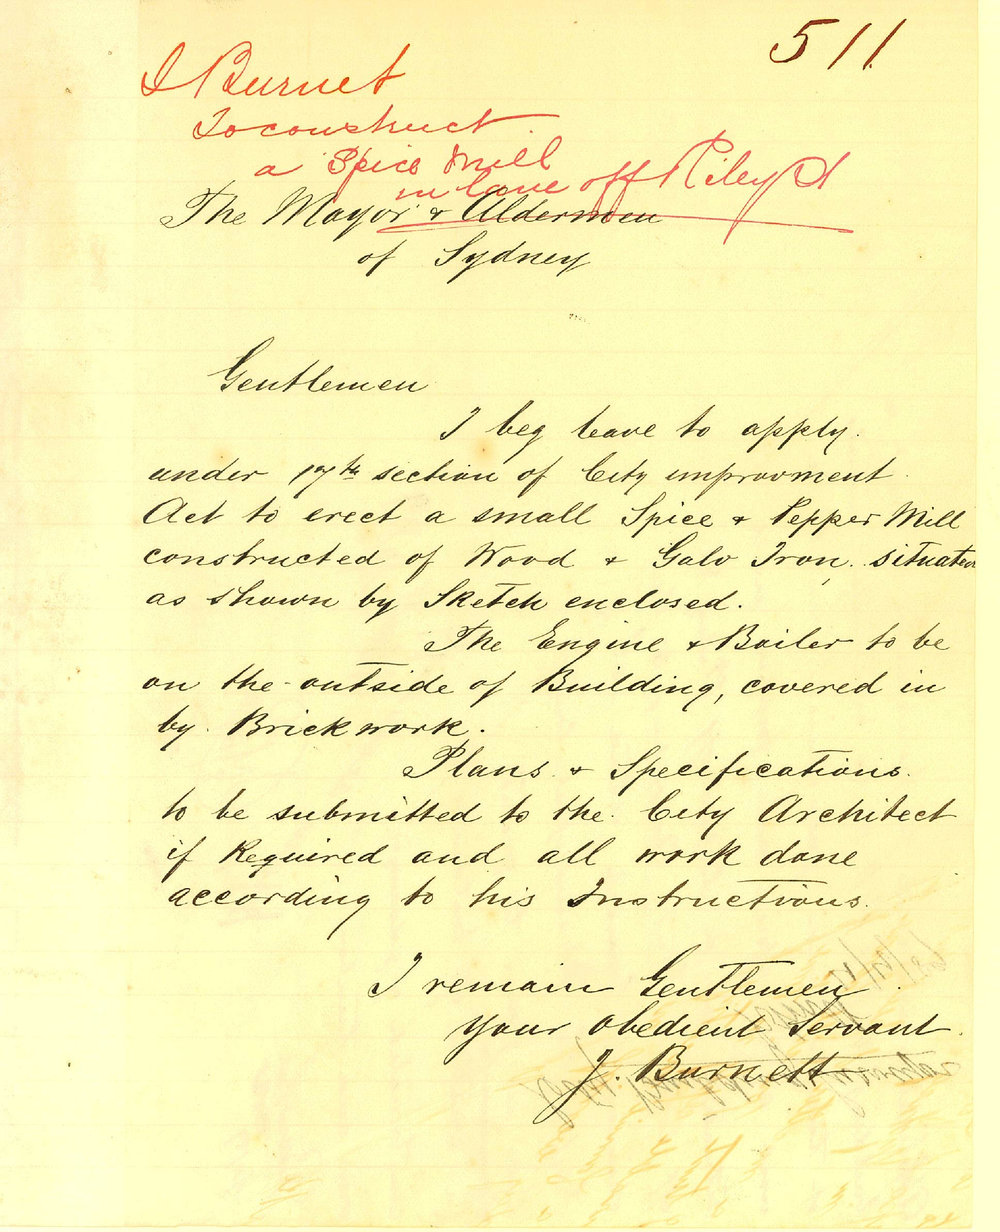 511
J Burnet
To construct
a Spice Mill
in lane off Riley St
The Mayor & Aldermen
of Sydney
Gentlemen
I beg leave to apply.
under 17th section of City improvment
Act to erect a small Spice & Pepper Mill
constructed of Wood & Galv Iron. situated
as shown by Sketch enclosed.
The Engine & Boiler to be
on the outside of Building, covered in
by Brickwork.
Plans & Specifications.
to be submitted to the City Architect
if Required and all work done
according to his Instructions.
I remain Gentlemen
Your Obedient Servant.
J. Burnett